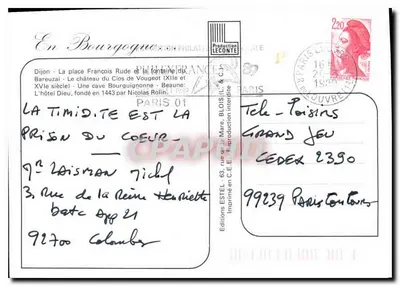 En Bourgogne
Dijon - La place François Rude et la fontaine du
Bareuzai - Le château du Clos de Vougeot (XIIe et
XVIe siècle) - Une cave Bourguignonne - Beaune:
L'hôtel Dieu, fondé en 1443 par Nicolas Rolin.
PARIS 01
PARIS
Production
LECONTE
Editions ESTEL - 63, rue BLOIS
Imprimé en C.E.E. Reproduction interdite
2,20
LA TIMIDITE EST LA
PRISON DU COEUR-
Mr LAISMAN Michel
3, Rue de la Reine Henriette
batc App 21
92700 Colombes
Tele-Poisins
GRAND JEU
CEDEX 2390
99239 PARIS CONCOURS